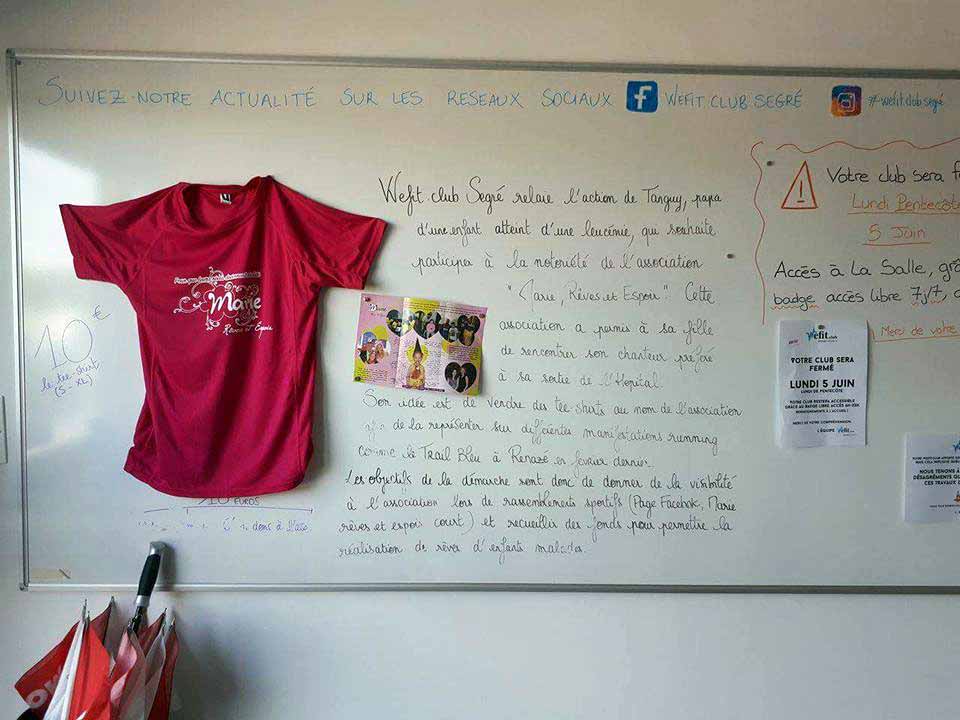 SUIVEZ-NOTRE ACTUALITÉ SUR LES RESEAUX SOCIAUX WEFIT.CLUB.SEGRÉ #-wefit.club.segré
Wefit.club Segré relaie l'action de Tanguy, papa
d'une enfant atteint d'une leucémie, qui souhaite
participer à la notoriété de l'association
"Marie, Rêves et Espoir". Cette
association a permis à sa fille
de rencontrer son chanteur préféré
à sa sortie de l'Hopital.
Son idée est de vendre des tee shirts au nom de l'association
afin de la représenter sur différentes manifestations running
comme le Trail Bleu à Renazé en février dernier.
Les objectifs de la démarche sont donc de donner de la visibilité
à l'association lors de rassemblements sportifs (Page Facebook, Marie
rêves et espoirs court) et recueillir des fonds pour permettre la
réalisation de rêves d'enfants malades.
Marie
Rêves et Espoir
10€
le tee-shirt
(S-XL)
10 EUROS
Votre club sera
Lundi Pentecôte
5 Juin
Accès à La Salle,
badge accès libre 7j/7,
Merci de votre
wefit.club
VOTRE CLUB SERA
FERMÉ
LUNDI 5 JUIN
LUNDI DE PENTECÔTE
VOTRE CLUB RESTERA ACCESSIBLE
GRÂCE AU BADGE LIBRE ACCÈS 6H-23H
RENSEIGNEMENTS À L'ACCUEIL !
MERCI DE VOTRE COMPRÉHENSION
L'ÉQUIPE
NOUS TENONS À
DÉSAGRÉMENTS
CES TRAVAUX